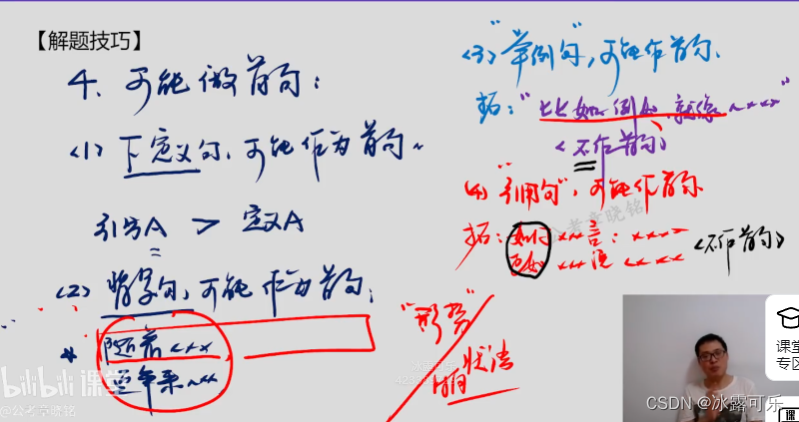 【解题技巧】
4、可能做首句：
<1> 下定义句、可能作为首句~
引出A > 定义A
<2> 背景句，可能作为首句；
* 随着×××
近年来×××
<3> "举例句"，可能作首句、
拓："比如、例如、就像~×××"
<不作首句>
<4> "引用句"，可能作首句、
拓：如何×××言：××××
正如×××说××××
<不作首句>
"形势"
状语
@公考章晓铭
bilibili 课堂
@公考章晓铭
课堂
专区
课
CSDN @冰露可乐